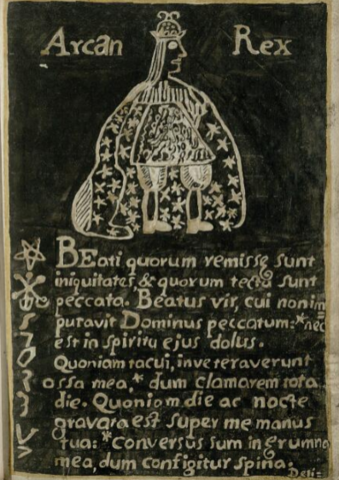 Arcan Rex
BEati quorum remissę sunt
iniquitates, & quorum tecta sunt
peccata. Beatus vir, cui non im=
putavit Dominus peccatum: * nec
est in spiritu ejus dolus.
Quoniam tacui, inveteraverunt
ossa mea, * dum clamarem tota
die. Quoniam die ac nocte
gravata est super me manus
tua: * Conversus sum in ęrumna
mea, dum configitur spina.
Deli=